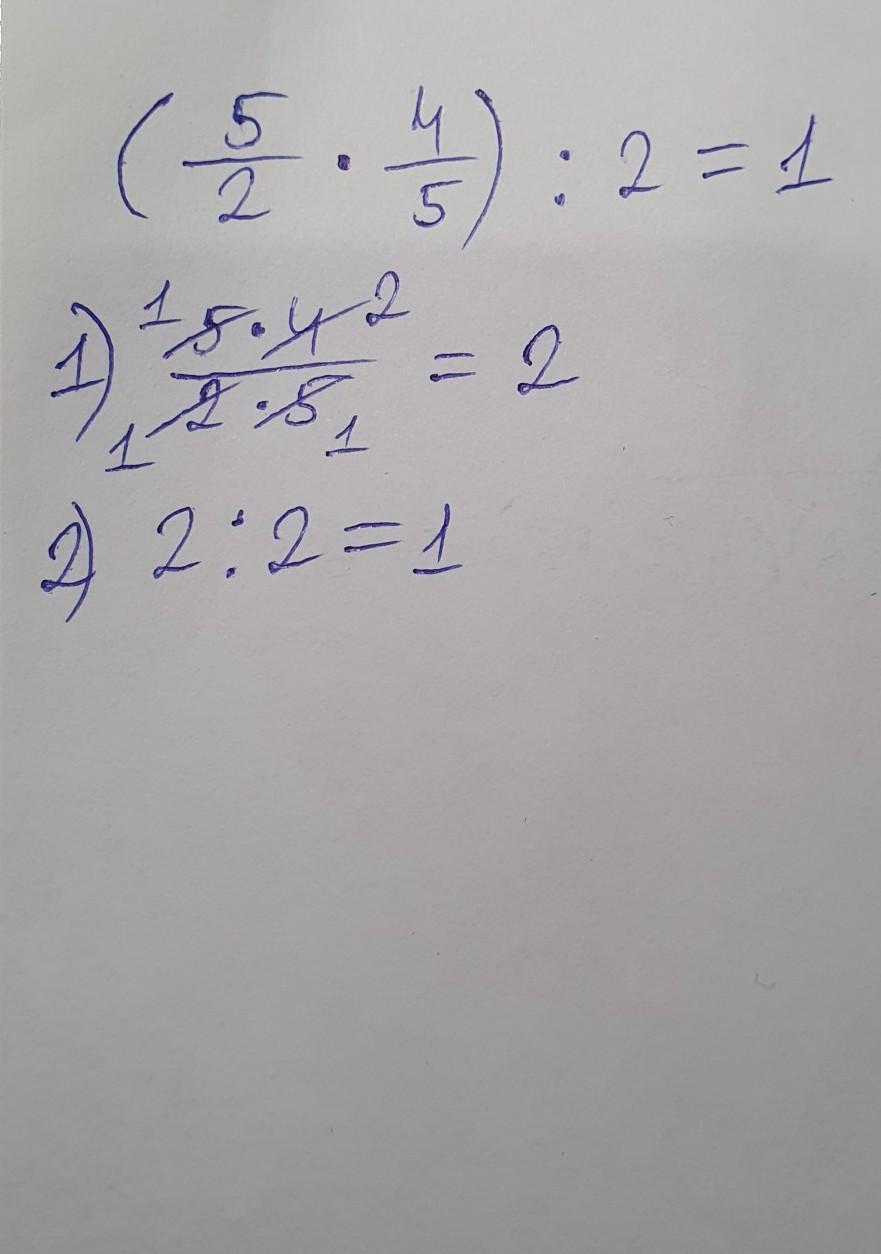 (5/2 · 4/5) : 2 = 1
1) 1 5 · 4 2 / 1 2 · 5 1 = 2
2) 2 : 2 = 1